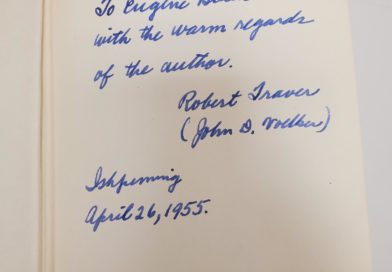 To Eugene
with the warm regards
of the author.
Robert Traver
(John D. Voelker)
Ishpeming
April 26, 1955.